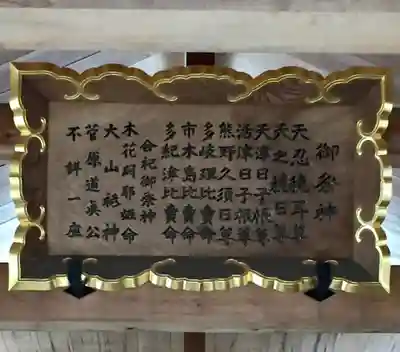 御祭神
天忍穂耳尊
天之穂日尊
天津日子根尊
活津日子根尊
熊野久須日尊
多岐理比賣命
市木島比賣命
多紀津比賣命
合祀御祭神
木花咲耶姫命
大山祗神
菅原道真公
不詳一座